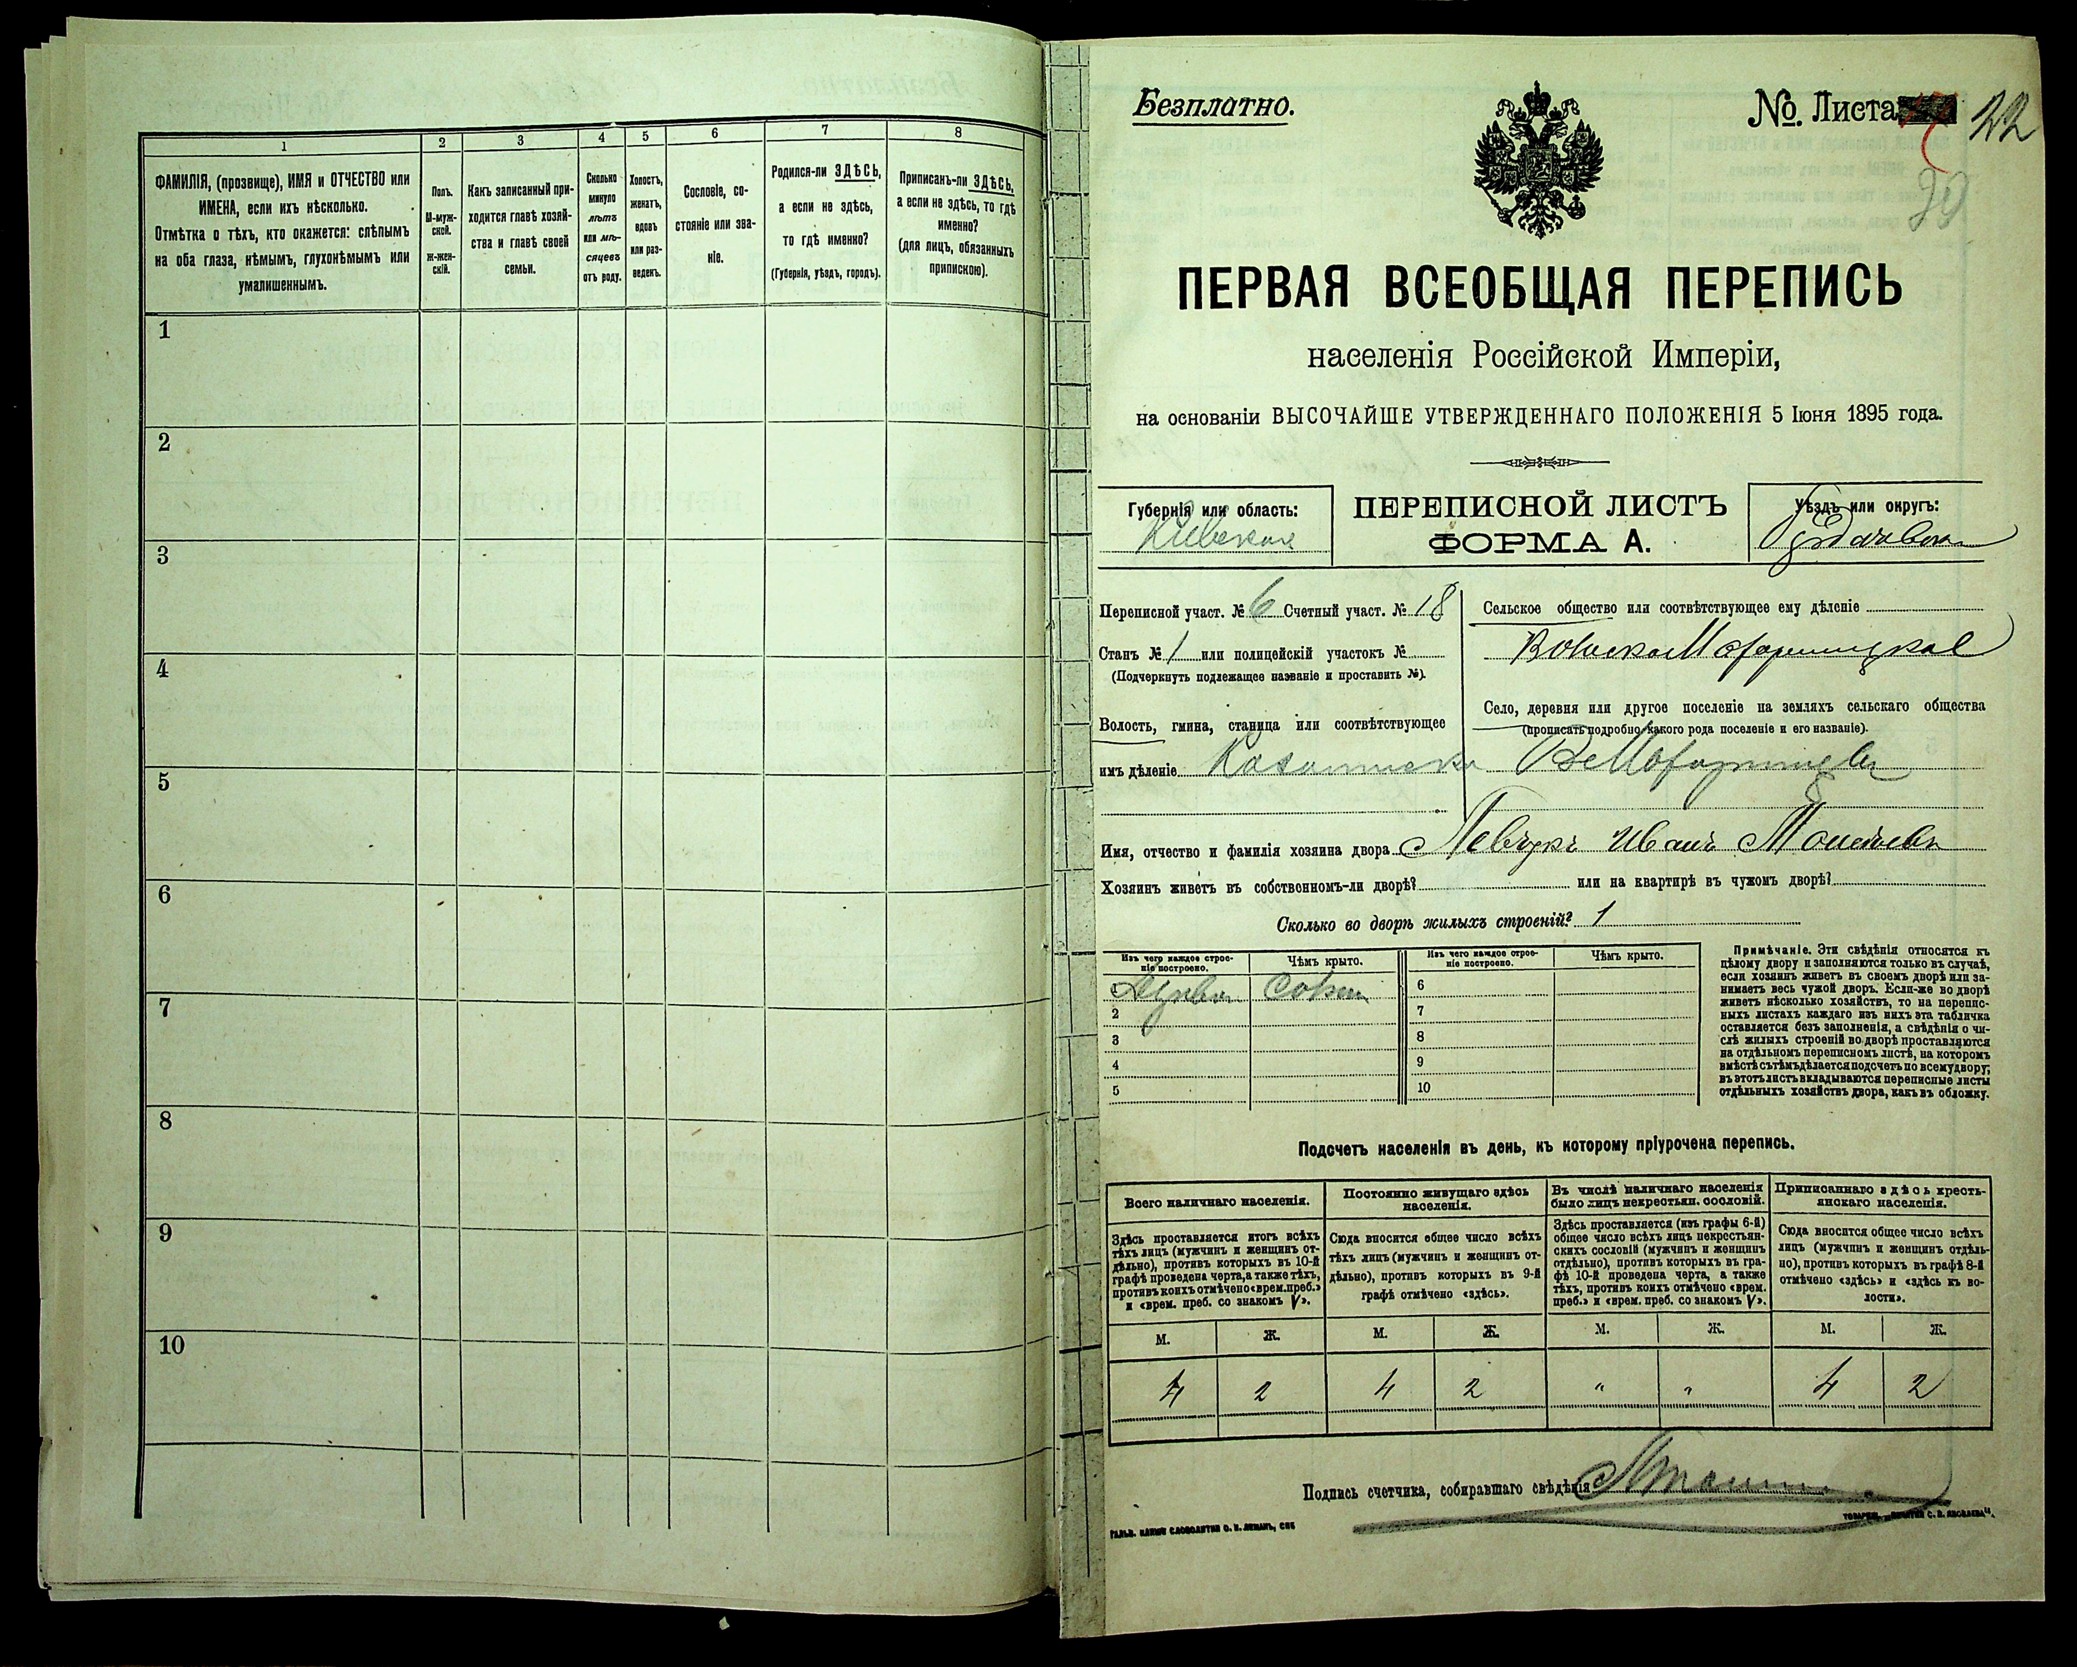 1
2
3
4
5
6
7
8
ФАМИЛІЯ, (прозвище), ИМЯ и ОТЧЕСТВО или
ИМЕНА, если ихъ нѣсколько.
Отмѣтка о тѣхъ, кто окажется: слѣпымъ
на оба глаза, нѣмымъ, глухонѣмымъ или
умалишеннымъ.
Полъ.
М-муж-
ской.
Ж-жен-
скій.
Какъ записанный при-
ходится главѣ хозяй-
ства и главѣ своей
семьи.
Сколько
минуло
лѣтъ
или мѣ-
сяцевъ
отъ роду.
Холостъ,
женатъ,
вдовъ
или раз-
веденъ.
Сословіе, со-
стояніе или зва-
ніе.
Родился-ли ЗДѢСЬ,
а если не здѣсь,
то гдѣ именно?
(Губернія, уѣздъ, городъ).
Приписанъ-ли ЗДѢСЬ,
а если не здѣсь, то гдѣ
именно?
(для лицъ, обязанныхъ
припискою).
1
2
3
4
5
6
7
8
9
10
Безплатно.
№. Листа 22
ПЕРВАЯ ВСЕОБЩАЯ ПЕРЕПИСЬ
населенія Россійской Имперіи,
на основаніи ВЫСОЧАЙШЕ УТВЕРЖДЕННАГО ПОЛОЖЕНІЯ 5 Іюня 1895 года.
Губернія или область:
Кіевская
ПЕРЕПИСНОЙ ЛИСТЪ
ФОРМА А.
Уѣздъ или округъ:
Переписной участ. № 6 Счетный участ. № 18
Станъ № 1 или полицейскій участокъ №
(Подчеркнуть подлежащее названіе и проставить №).
Волость, гмина, станица или соотвѣтствующее
имъ дѣленіе
Сельское общество или соотвѣтствующее ему дѣленіе
Село, деревня или другое поселеніе на земляхъ сельскаго общества
(прописать подробно какого рода поселеніе и его названіе).
Имя, отчество и фамилія хозяина двора Иванъ
Хозяинъ живетъ въ собственномъ-ли дворѣ? или на квартирѣ въ чужомъ дворѣ?
Сколько во дворѣ жилыхъ строеній? 1
Изъ чего каждое строе-
ніе построено.
Чѣмъ крыто.
Изъ чего каждое строе-
ніе построено.
Чѣмъ крыто.
2
3
4
5
6
7
8
9
10
Примѣчаніе. Эти свѣдѣнія относятся къ
цѣлому двору и заполняются только въ случаѣ,
если хозяинъ живетъ въ своемъ дворѣ или за-
нимаетъ весь чужой дворъ. Если-же во дворѣ
живетъ нѣсколько хозяйствъ, то на перепис-
ныхъ листахъ каждаго изъ нихъ эта табличка
оставляется безъ заполненія, а свѣдѣнія о чи-
слѣ жилыхъ строеній во дворѣ проставляются
на отдѣльномъ переписномъ листѣ, на которомъ
вмѣстѣ съ тѣмъ дѣлается подсчетъ по всему двору;
въ этотъ листъ вкладываются переписные листы
отдѣльныхъ хозяйствъ двора, какъ въ обложку.
Подсчетъ населенія въ день, къ которому пріурочена перепись.
Всего наличнаго населенія.
Постоянно живущаго здѣсь
населенія.
Въ числѣ наличнаго населенія
было лицъ некрестьян. сословій.
Приписаннаго здѣсь кресть-
янскаго населенія.
Здѣсь проставляется итогъ всѣхъ
тѣхъ лицъ (мужчинъ и женщинъ от-
дѣльно), противъ которыхъ въ 10-й
графѣ проведена черта, а также тѣхъ,
противъ коихъ отмѣчено «врем. преб.»
и «врем. преб. со знакомъ V».
Сюда вносится общее число всѣхъ
тѣхъ лицъ (мужчинъ и женщинъ от-
дѣльно), противъ которыхъ въ 9-й
графѣ отмѣчено «здѣсь».
Здѣсь проставляется (изъ графы 6-й)
общее число всѣхъ лицъ некрестьян-
скихъ сословій (мужчинъ и женщинъ
отдѣльно), противъ которыхъ въ гра-
фѣ 10-й проведена черта, а также
тѣхъ, противъ коихъ отмѣчено «врем.
преб.» и «врем. преб. со знакомъ V».
Сюда вносится общее число всѣхъ
лицъ (мужчинъ и женщинъ отдѣль-
но), противъ которыхъ въ графѣ 8-й
отмѣчено «здѣсь» и «здѣсь къ во-
лости».
М. Ж. М. Ж. М. Ж. М. Ж.
4 2 4 2 " " 4 2
Подпись счетчика, собиравшаго свѣдѣнія